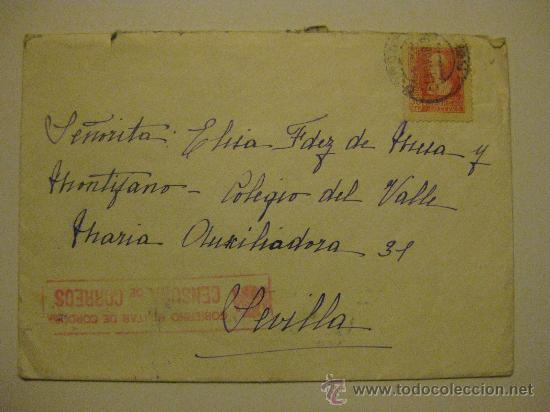 Señorita: Elisa Fdez de Mesa y
Montijano - Colegio del Valle
Maria Auxiliadora 31
Sevilla
GOBIERNO MILITAR DE CORDOBA
CENSURA DE CORREOS
www.todocoleccion.net